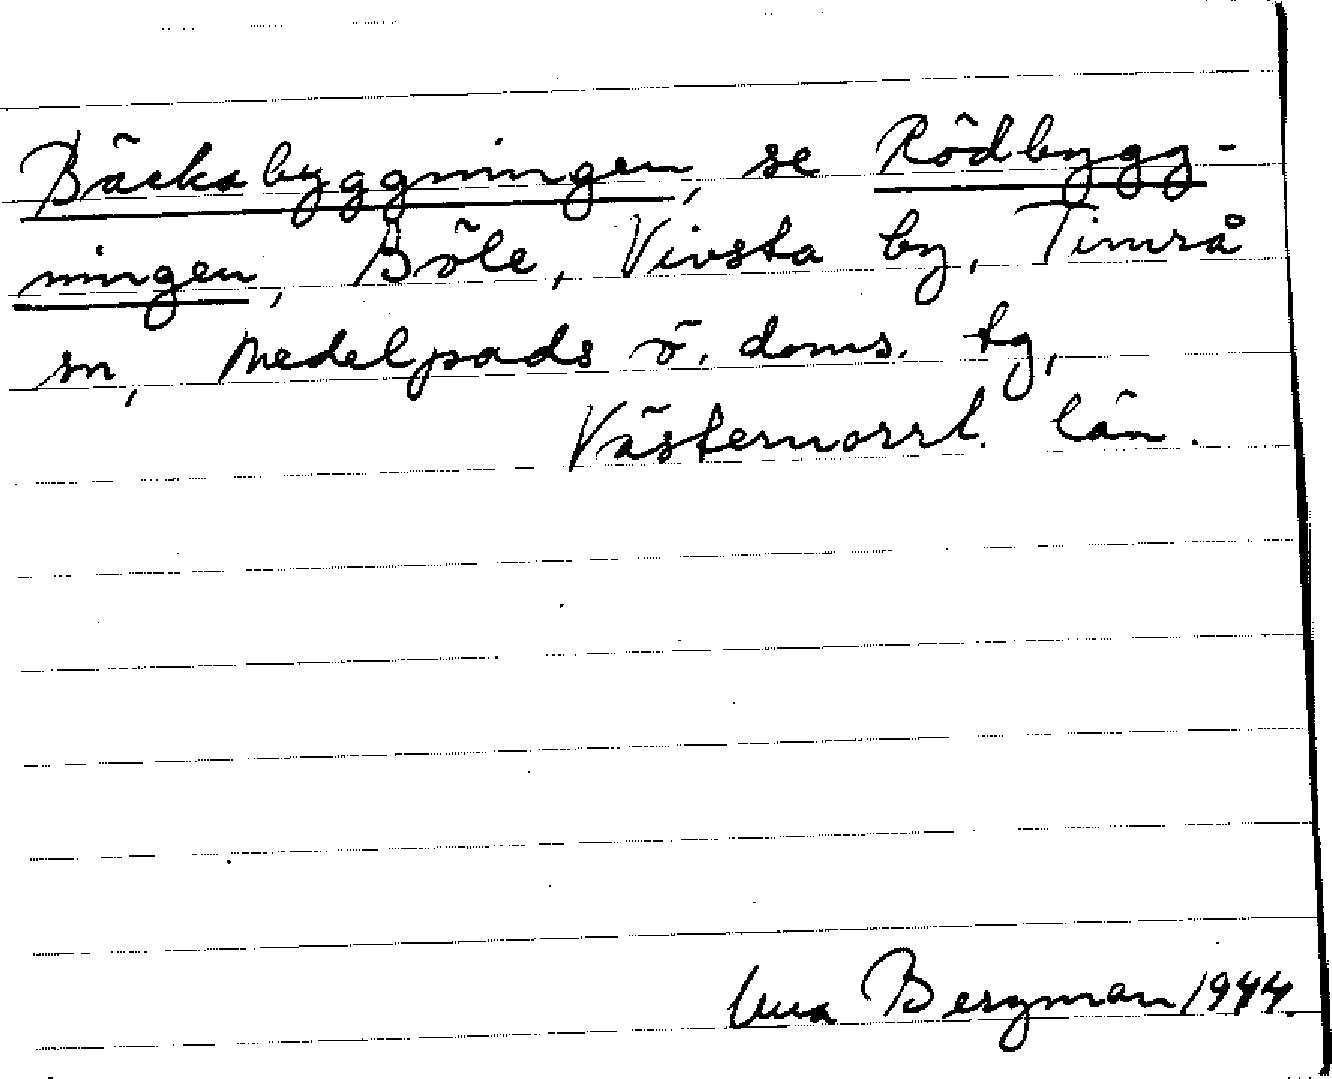 Bäcksbyggningen, se Rödbygg-
ningen, Böle, Vivsta by, Timrå
sn, Medelpads ö. doms. tg,
Västernorrl. län.
Una Bergman 1944.